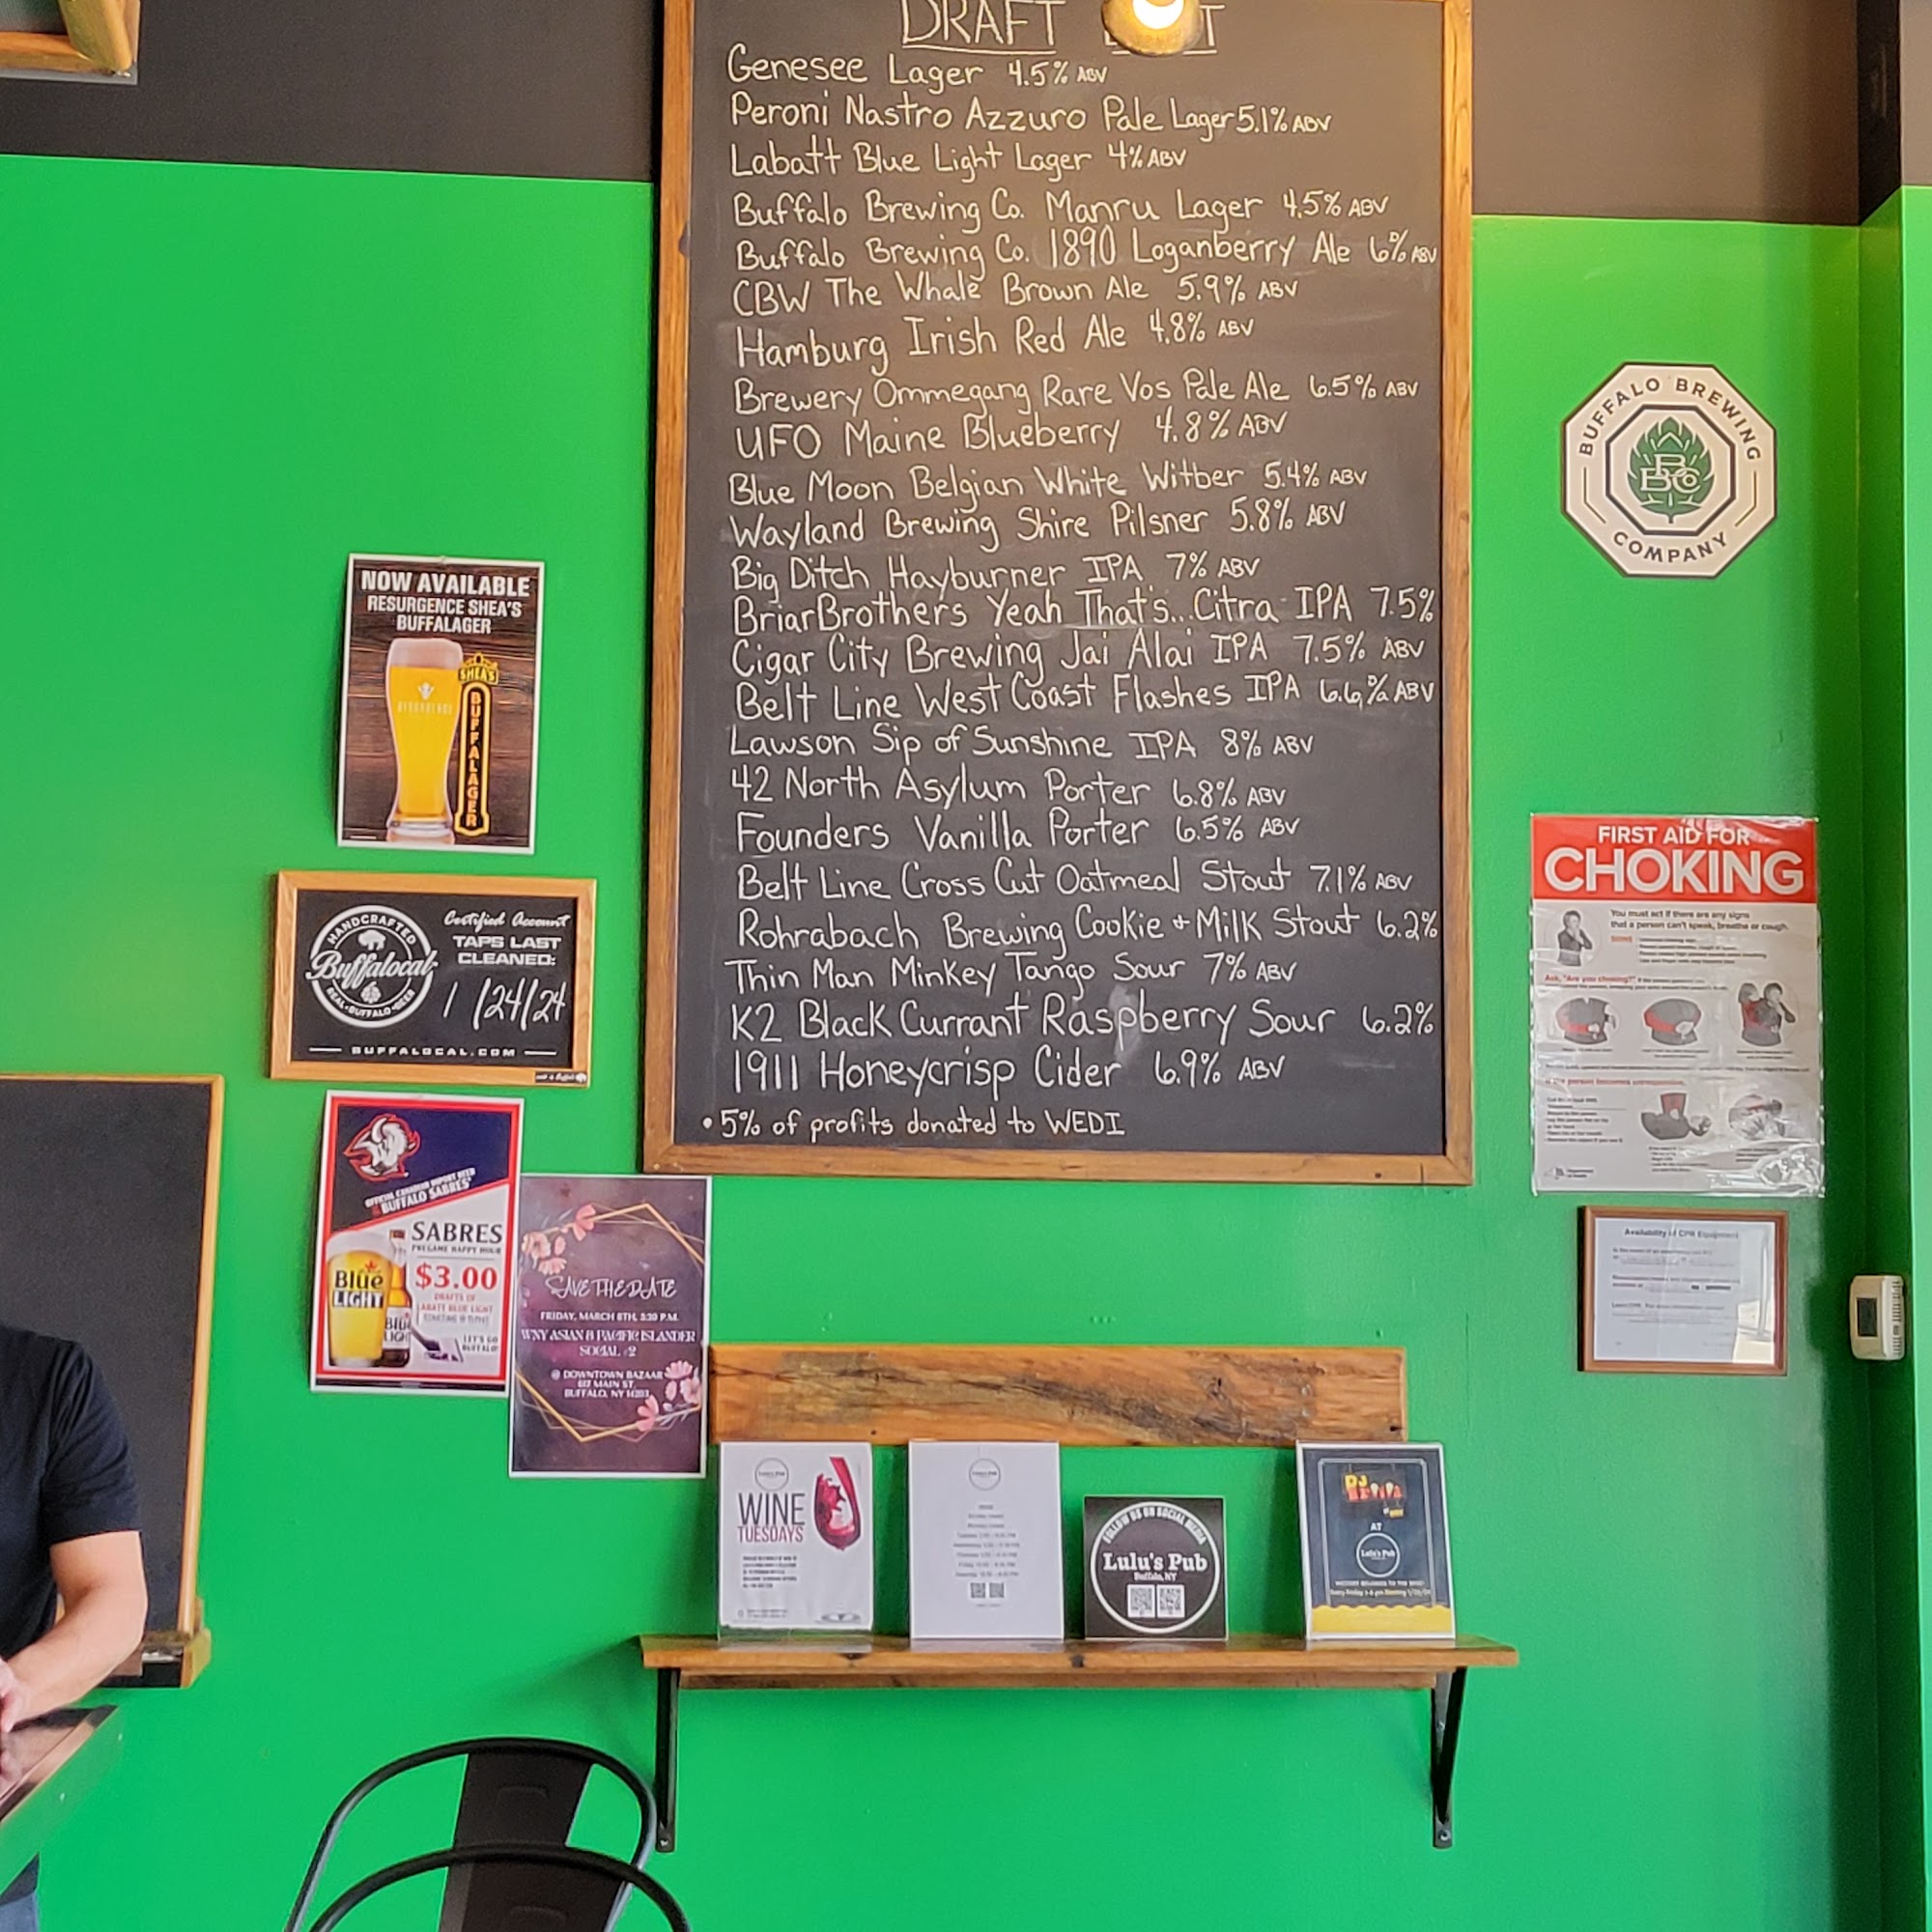 DRAFT
Genesee Lager 4.5% ABV
Peroni Nastro Azzuro Pale Lager 5.1% ABV
Labatt Blue Light Lager 4% ABV
Buffalo Brewing Co. Manru Lager 4.5% ABV
Buffalo Brewing Co. 1890 Loganberry Ale 6% ABV
CBW The Whale Brown Ale 5.9% ABV
Hamburg Irish Red Ale 4.8% ABV
Brewery Ommegang Rare Vos Pale Ale 6.5% ABV
UFO Maine Blueberry 4.8% ABV
Blue Moon Belgian White Witber 5.4% ABV
Wayland Brewing Shire Pilsner 5.8% ABV
Big Ditch Hayburner IPA 7% ABV
BriarBrothers Yeah That's...Citra IPA 7.5%
Cigar City Brewing Jai Alai IPA 7.5% ABV
Belt Line West Coast Flashes IPA 6.6% ABV
Lawson Sip of Sunshine IPA 8% ABV
42 North Asylum Porter 6.8% ABV
Founders Vanilla Porter 6.5% ABV
Belt Line Cross Cut Oatmeal Stout 7.1% ABV
Rohrabach Brewing Cookie + Milk Stout 6.2%
Thin Man Minkey Tango Sour 7% ABV
K2 Black Currant Raspberry Sour 6.2%
1911 Honeycrisp Cider 6.9% ABV
• 5% of profits donated to WEDI
BUFFALO BREWING
BBCo
COMPANY
NOW AVAILABLE
RESURGENCE SHEA'S
BUFFALAGER
SHEA'S
BUFFALAGER
HANDCRAFTED
Buffalocal
REAL • BUFFALO • BEER
Certified Account
TAPS LAST
CLEANED:
1/24/24
BUFFALOCAL.COM
OFFICIAL CANADIAN IMPORT BEER
BUFFALO SABRES
SABRES
PREGAME HAPPY HOUR
$3.00
DRAFTS OF
LABATT BLUE LIGHT
Blue
LIGHT
LET'S GO
BUFFALO!
SAVE THE DATE
FRIDAY, MARCH 8TH, 5:30 P.M.
WNY ASIAN & PACIFIC ISLANDER
SOCIAL #2
@ DOWNTOWN BAZAAR
617 MAIN ST.
BUFFALO, NY 14203
FIRST AID FOR
CHOKING
You must act if there are any signs
that a person can't speak, breathe or cough.
Ask, "Are you choking?"
Availability of CPR Equipment
Lulu's Pub
WINE
TUESDAYS
Lulu's Pub
FOLLOW US ON SOCIAL MEDIA
Lulu's Pub
Buffalo, NY
DJ
AT
Lulu's Pub